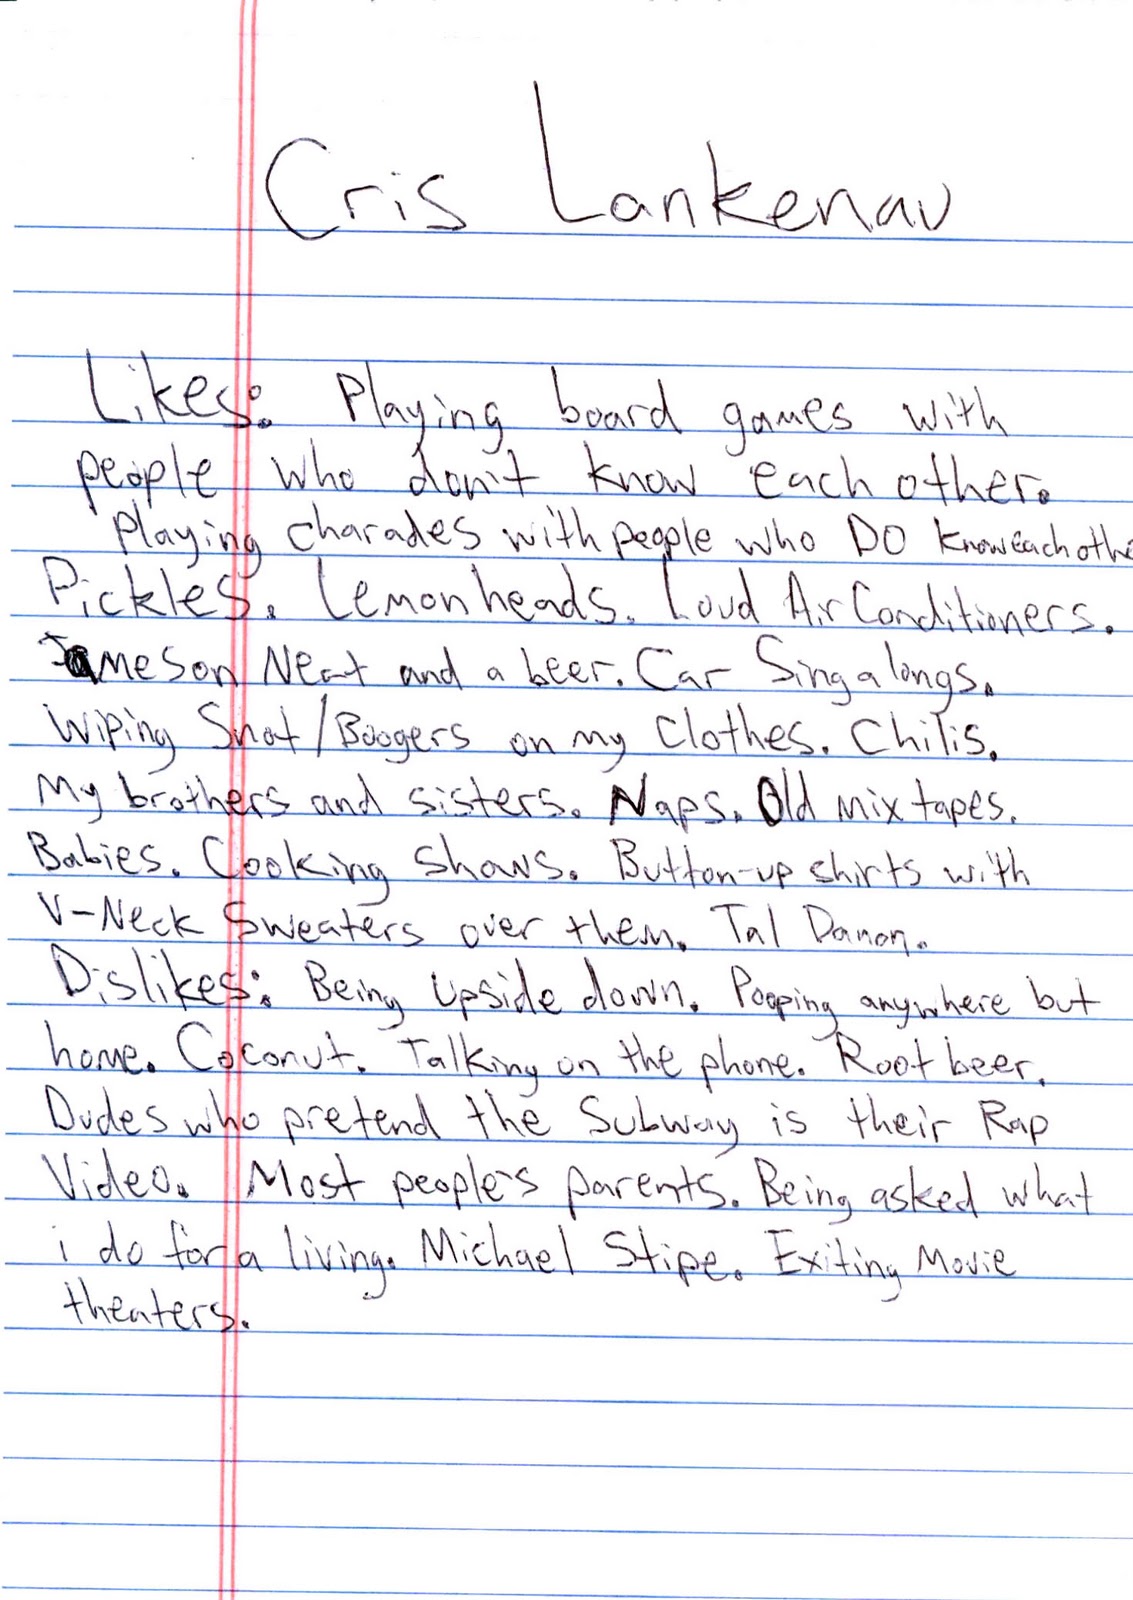 Cris Lankenau
Likes: Playing board games with
people who don't know each other.
Playing charades with people who DO know each othe
Pickles. Lemonheads. Loud Air Conditioners.
Jameson Neat and a beer. Car Singalongs.
Wiping Snot/Boogers on my Clothes. Chilis.
My brothers and sisters. Naps. Old mix tapes.
Babies. Cooking Shows. Button-up shirts with
V-Neck Sweaters over them. Tal Danon.
Dislikes: Being upside down. Pooping anywhere but
home. Coconut. Talking on the phone. Root beer.
Dudes who pretend the Subway is their Rap
Video. Most people's parents. Being asked what
i do for a living. Michael Stipe. Exiting Movie
theaters.